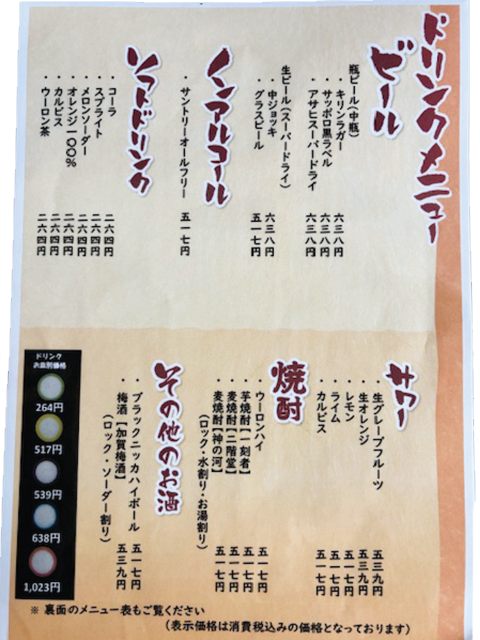 ドリンクメニュー
ビール
瓶ビール(中瓶)
・キリンラガー 六三八円
・サッポロ黒ラベル 六三八円
・アサヒスーパードライ 六三八円
生ビール(スーパードライ)
・中ジョッキ 六三八円
・グラスビール 五一七円
ノンアルコール
・サントリーオールフリー 五一七円
ソフトドリンク
・コーラ 二六四円
・スプライト 二六四円
・メロンソーダー 二六四円
・オレンジ一〇〇% 二六四円
・カルピス 二六四円
・ウーロン茶 二六四円
サワー
・生グレープフルーツ 五三九円
・生オレンジ 五三九円
・レモン 五一七円
・ライム 五一七円
・カルピス 五一七円
焼酎
・ウーロンハイ 五一七円
・芋焼酎【一刻者】 五一七円
・麦焼酎【二階堂】 五一七円
・麦焼酎【神の河】 五一七円
(ロック・水割り・お湯割り)
その他のお酒
・ブラックニッカハイボール 五一七円
・梅酒【加賀梅酒】 五三九円
(ロック・ソーダー割り)
ドリンク
お皿別価格
264円
517円
539円
638円
1,023円
※ 裏面のメニュー表もご覧ください
(表示価格は消費税込みの価格となっております)